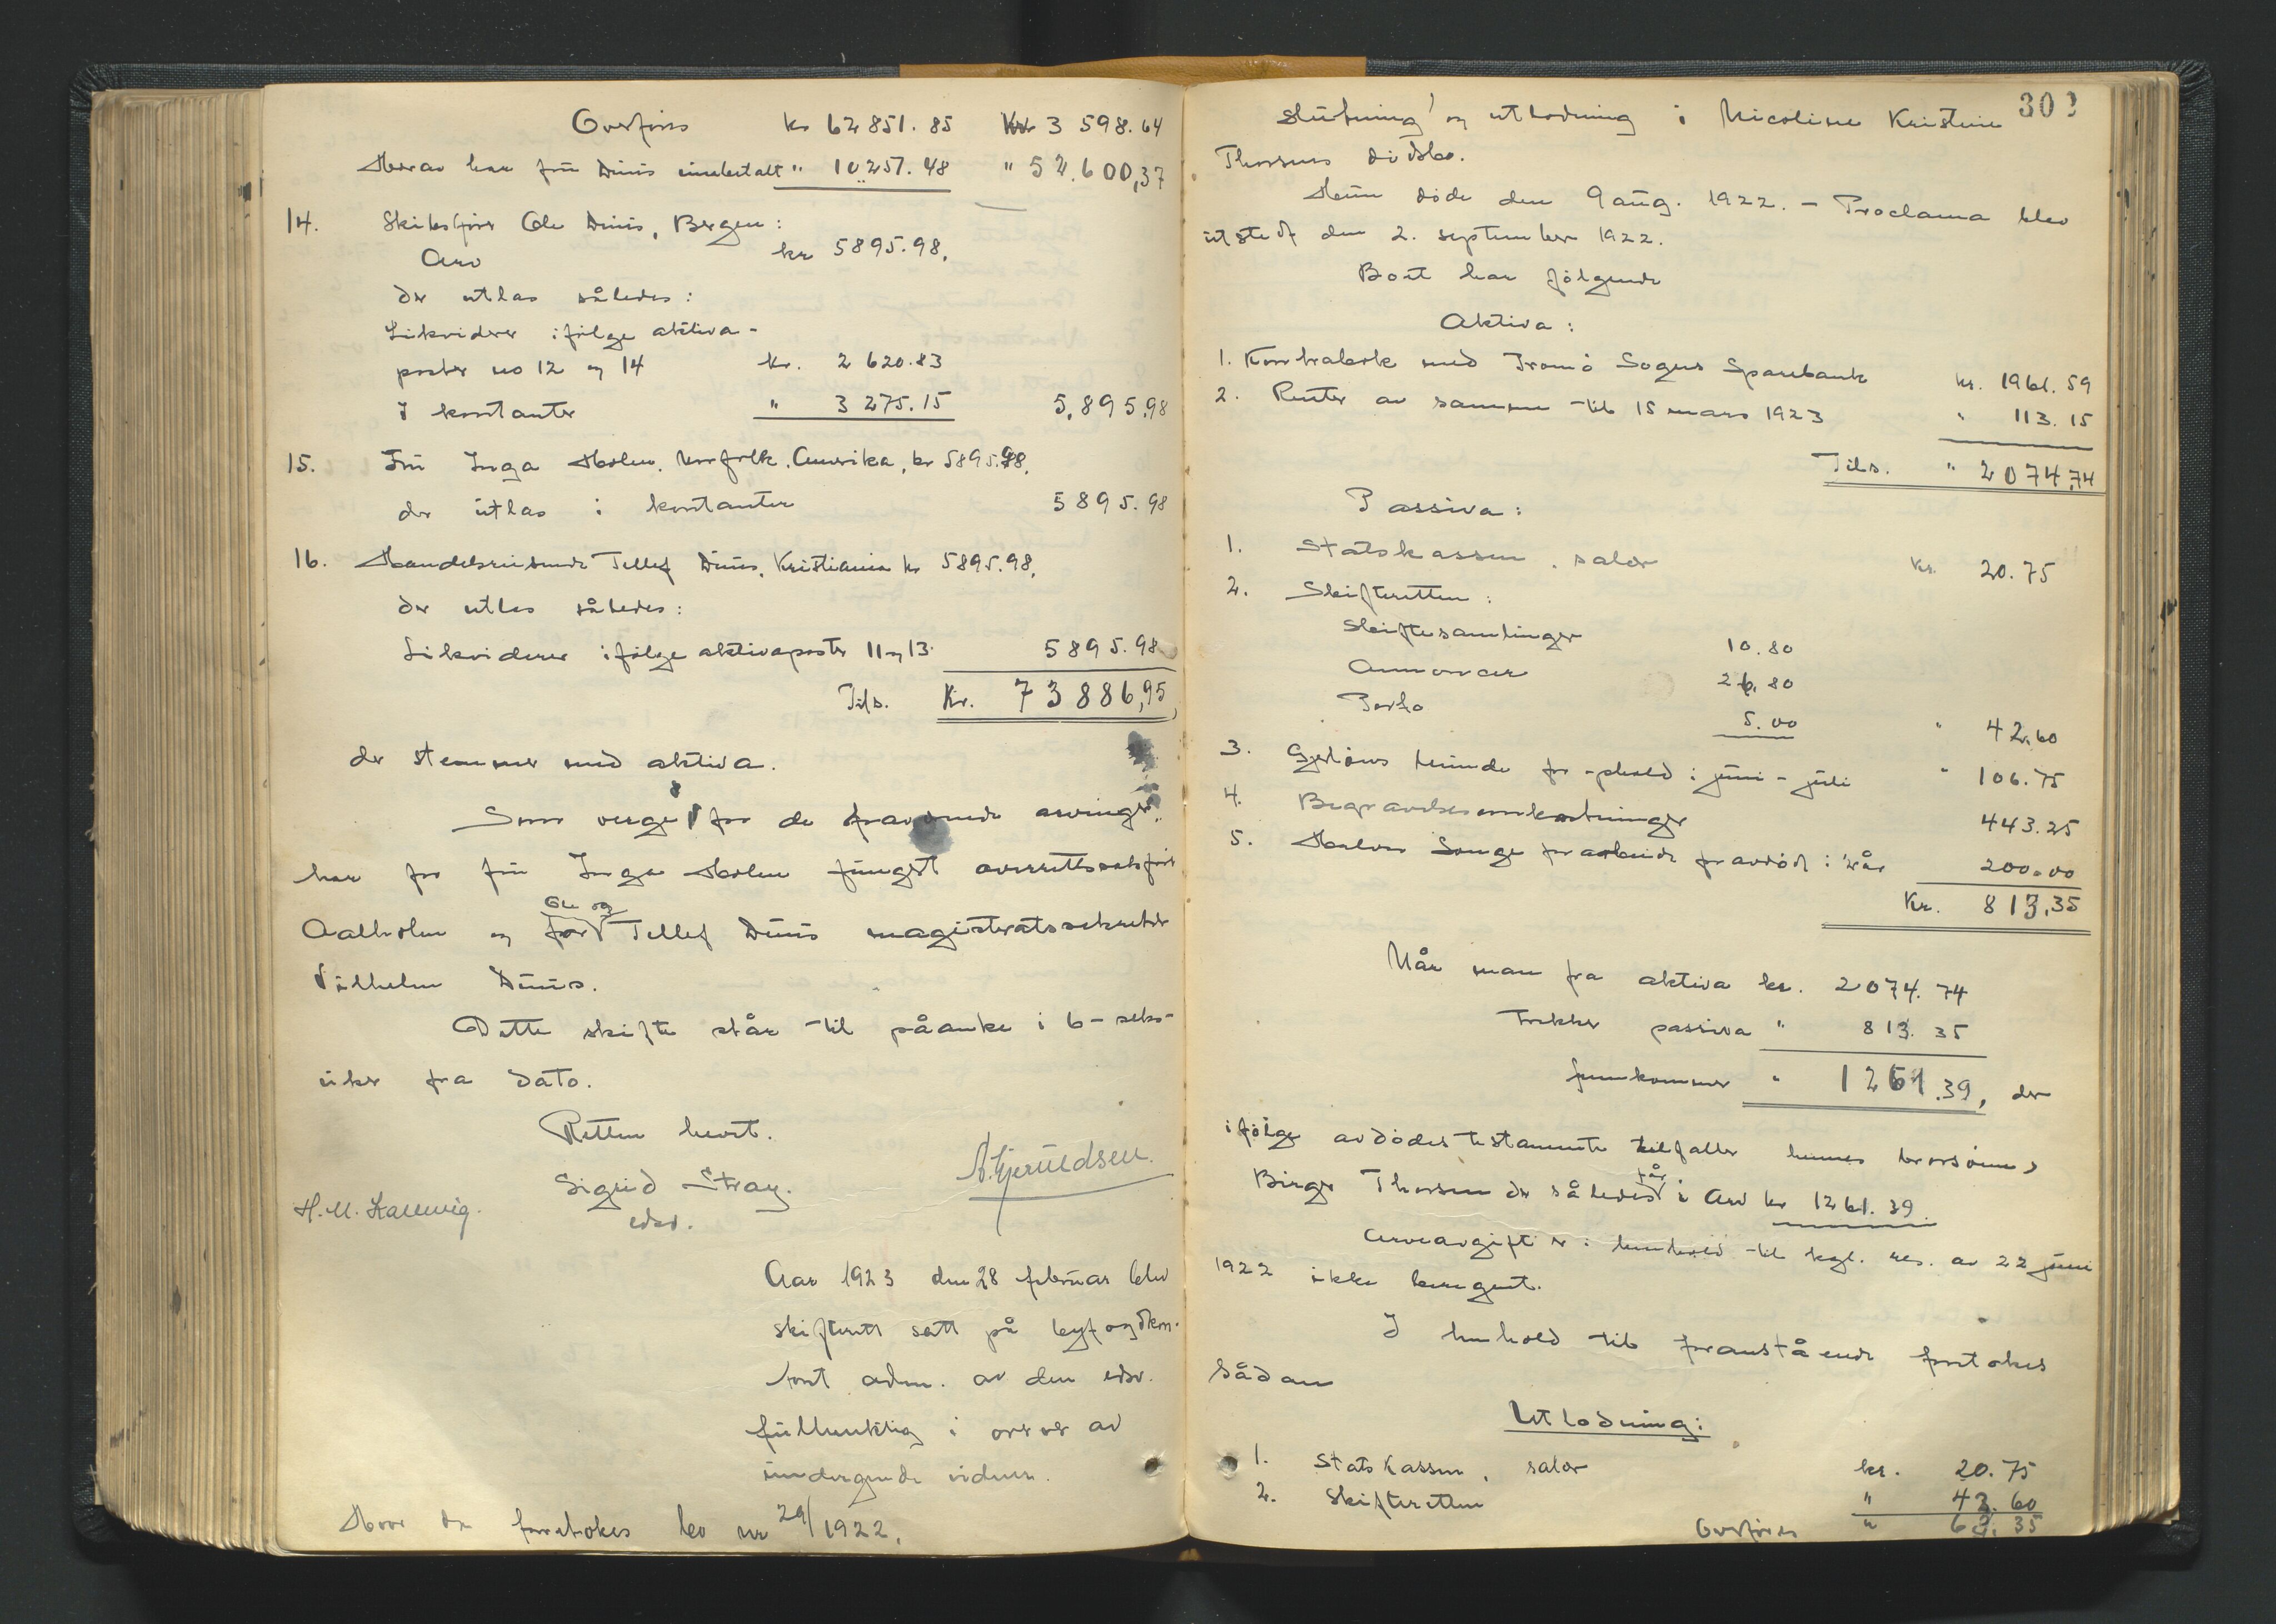 Overføres kr 62851.85 Kr 3 598.64
Herav har frü Düüs innebetalt " 10257.48 " 52.600,37
14. Skibsfører Ole Düüs, Bergen:
Arv kr 5895.98,
der utlas således:
Likviderer ifølge aktiva-
poster no 12 og 14 kr. 2 620.83
I kontanter " 3 275.15 5,895.98
15. Frü Inga Holm, Norfolk, Amerika, kr 5895.98,
der ütlas i kontanter 5895.98
16. Handelsreisende Tellef Düüs, Kristiania kr 5895.98,
der utlas således:
Likviderer ifølge aktivaposter 11 og 13 5895.98
Tils. Kr. 73886,95,
der stemmer med aktiva.
Som verger for de fraværende arvinger
har for frü Inga Holm füngert overrettssakfører
Aalholm og for Ole og Tellef Düüs magistratssekretær
Vilhelm Düüs.
Dette skifte står til påanke i 6-seks-
üker fra dato.
Retten hevet.
Sigrid Stray. A. Gjerüldsen.
H. M. Kallevig. edsv.
Aar 1923 den 28 februar blev
skifterett satt på byfogdkon-
toret adm. av den edsv.
füllmektig i overvær av
ündertegnede vidner.
Hvor da foretokes bo nr 29/1922,
303
Slütning og utlodning i Nicoline Kristine
Thorsens dødsbo.
Hün døde den 9 aüg. 1922. - Proclama blev
ütstedt den 2. september 1922.
Boet har følgende
Aktiva:
1. Kontrabok med Tromø Sogns Sparebank kr. 1961.59
2. Renter av samme til 15 mars 1923 " 113.15
Tils. " 2074,74
Passiva:
1. Statskassen, salær kr. 20.75
2. Skifteretten:
Skiftesamlinger 10.80
Annoncer 26.80
Porto 5.00 " 42,60
3. for ophold i jüni - jüli " 106.75
4. Begravelsesomkostninger 443.25
5. Halvor Songe for arbeide for avdød i år 200.00
Kr. 813,35
Når man fra aktiva kr. 2074.74
Trekker passiva " 813.35
fremkommer " 1261.39, der
ifølge avdødes testamente tilfaller hennes brorsønn,
Birger Thorsen der således får i Arv kr 1261.39
Arveavgift er i henhold til kgl. res. av 22 jüni
1922 ikke beregnet.
I henhold til foranstående foretokes
sådan
Utlodning:
1. Statskassen, salær kr. 20.75
2. Skifteretten " 42.60
Overføres " 63.35